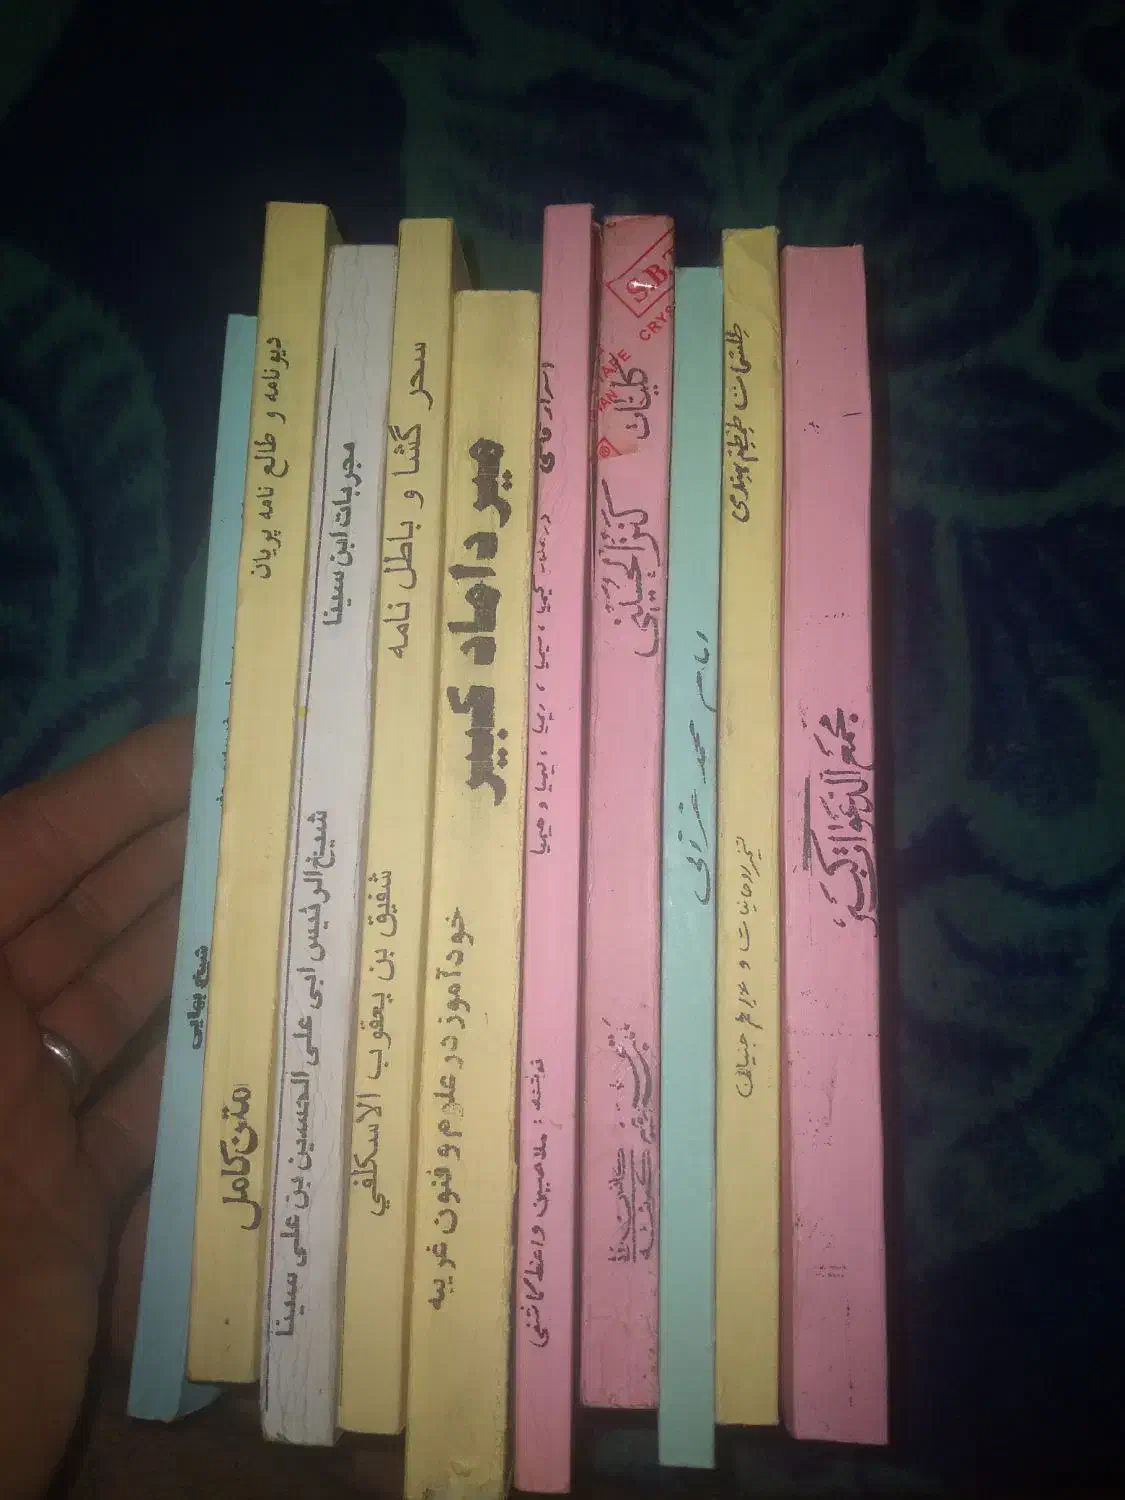 شیخ بهایی
دیونامه و طالع نامه پریان
متن کامل
مجربات ابن سینا
شیخ الرئیس ابی علی الحسین بن علی سینا
سحر گشا و باطل نامه
شفیق بن یعقوب الاسکلفي
میرداماد کبیر
خودآموز در علوم و فنون غریبه
اسرار قاسمی
در علوم کیمیا ، سیمیا ، ریمیا ، لیمیا و هیمیا
نویسنده : ملاحسین واعظ کاشفی
S.B.T
CRYS
TAPE
کلیات
کنز الحسینی
امام محمد غزالی
طلسمات طمطم هندی
تسخیر روحانیات و عزائم جنیان
مجمع الدعوات کبیر